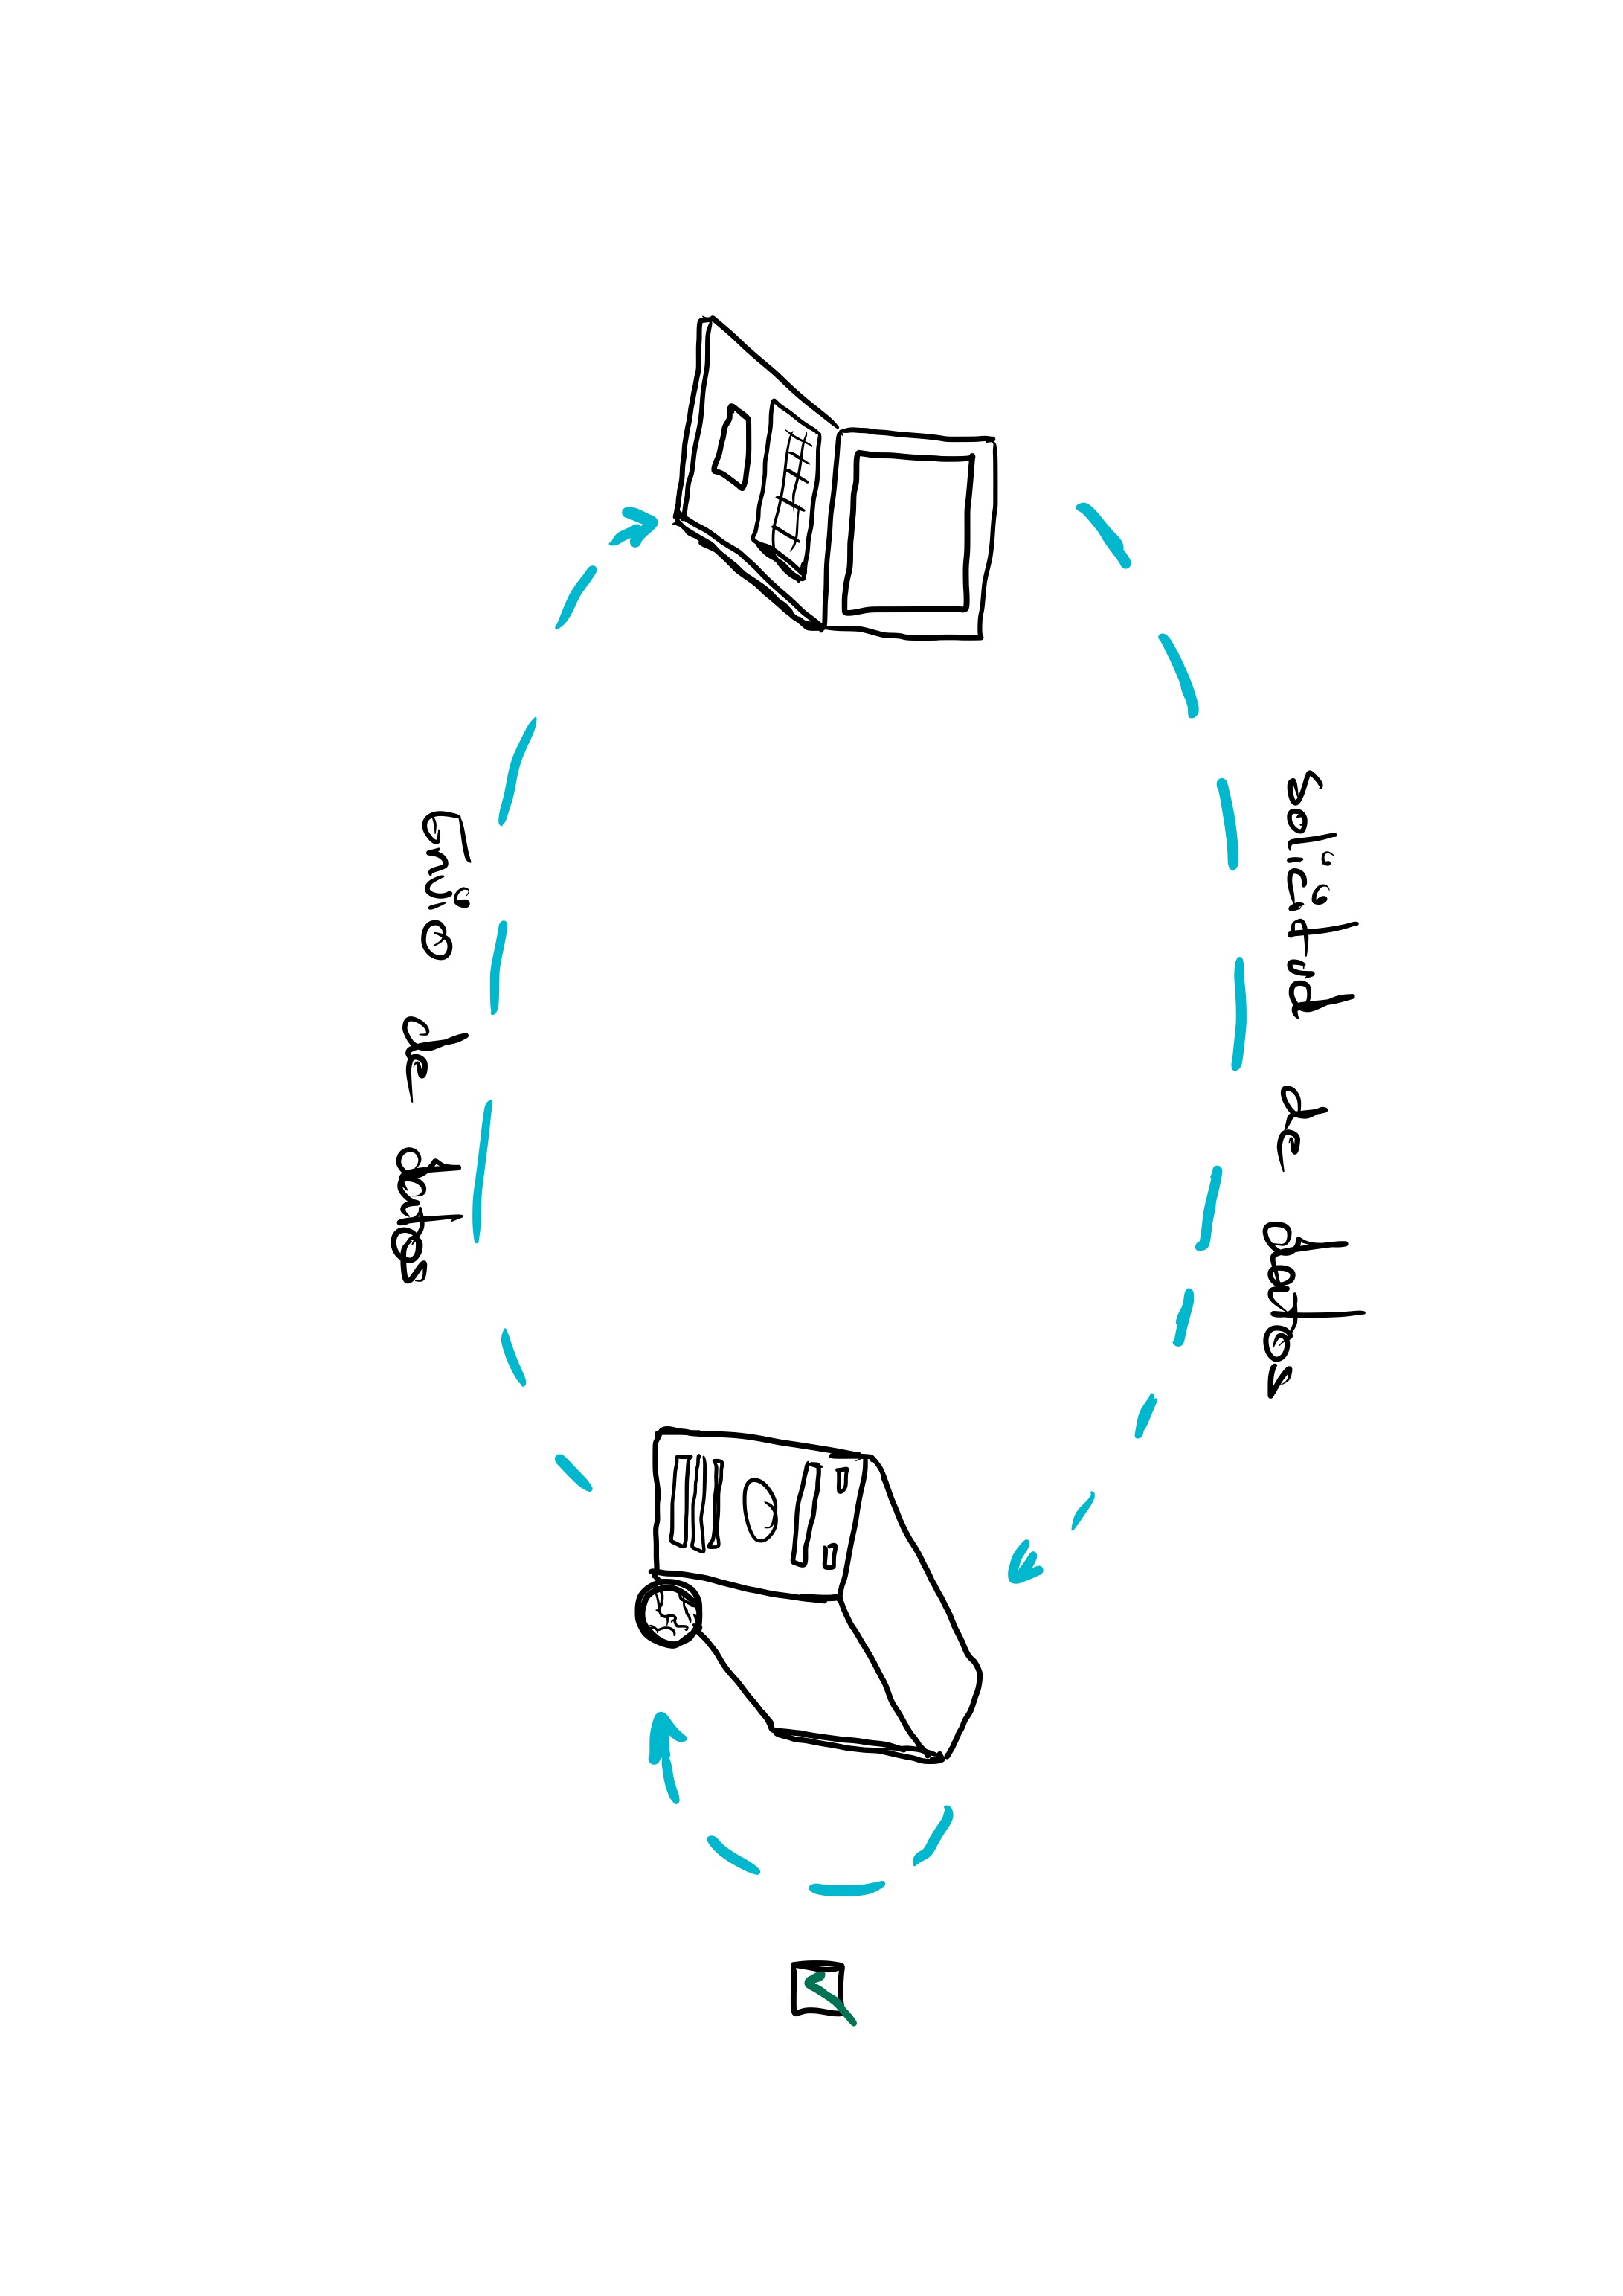 solicitud de datos
Envio de datos